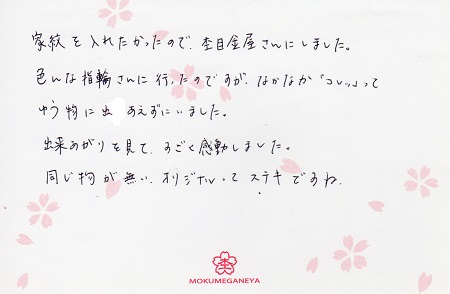 家紋を入れたかったので、杢目金屋さんにしました。
色んな指輪さんに行ったのですが、なかなか「コレッ」って
ゆう物に出あえずにいました。
出来あがりを見て、すごく感動しました。
同じ物が無い、オリジナルってステキですね。
MOKUMEGANEYA